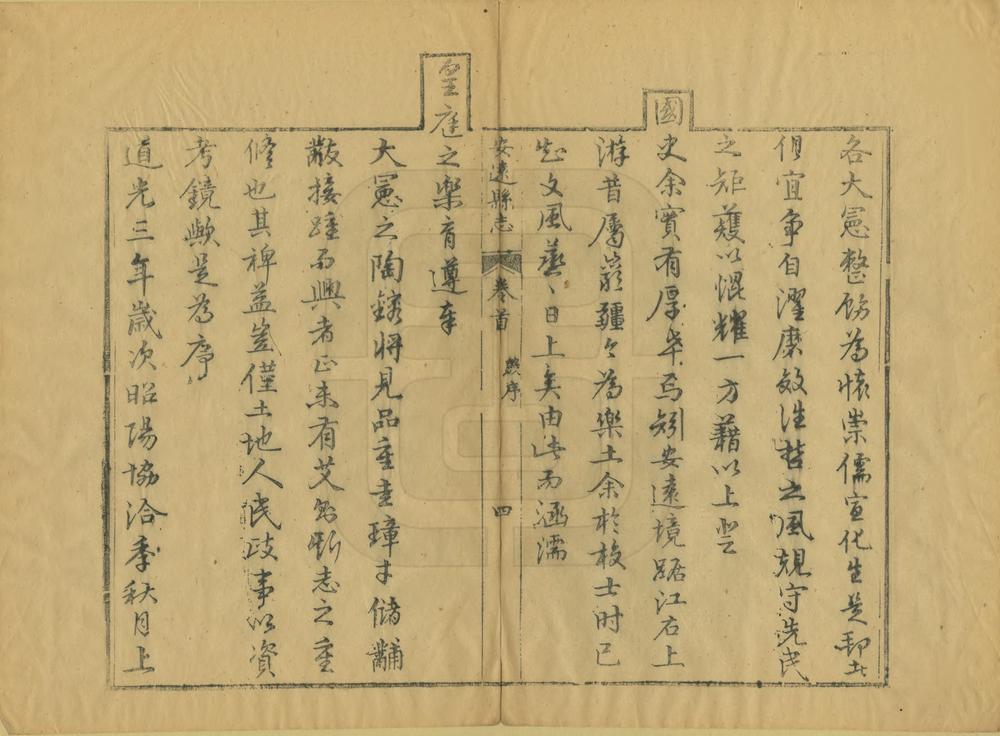 各大憲整飭為懷崇儒宣化生是邦者
俱宜爭自濯磨效往哲之風規守先民
之矩矱以焜耀一方藉以上登
國
史余實有厚幸焉矧安遠境踞江右上
游昔屬巖疆今為樂土余於校士時已
知文風蒸蒸日上矣由此而涵濡
安遠縣志 卷首 熊序 四
皇庭
之樂育遵奉
大憲之陶鎔將見品重圭璋才儲黼
黻接踵而興者正未有艾然則斯志之重
修也其裨益豈僅土地人民政事以資
考鏡歟是為序
道光三年歲次昭陽協洽季秋月上